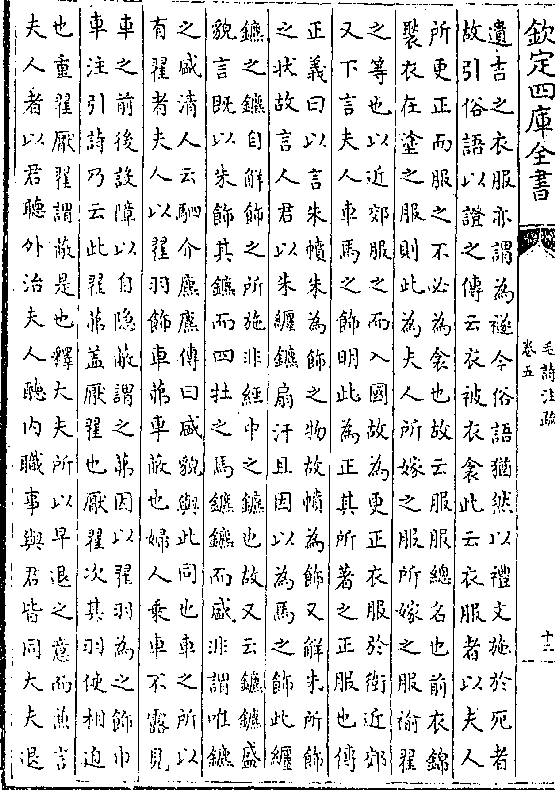 欽定四庫全書
毛詩注疏
卷五
十三
遺吉之衣服亦謂為襚今俗語猶然以禮文施於死者
故引俗語以證之傳云衣被衣衾此云衣服者以夫人
所更正而服之不必為衾也故云服服總名也前衣錦
褧衣在塗之服則此為夫人所嫁之服所嫁之服褕翟
之等也以近郊服之而入國故為更正衣服於衛近郊
又下言夫人車馬之飾明此為正其所著之正服也傳
正義曰以言朱幩朱為飾之物故幩為飾又解朱所飾
之狀故言人君以朱纒鑣扇汗且因以為馬之飾此纒
鑣之鑣自解飾之所施非經中之鑣也故又云鑣鑣盛
貌言既以朱飾其鑣而四牡之馬鑣鑣而盛非謂唯鑣
之盛清人云駟介麃麃傳曰盛貌與此同也車之所以
有翟者夫人以翟羽飾車茀車蔽也婦人乗車不露見
車之前後設障以自隐蔽謂之茀因以翟羽為之飾巾
車注引詩乃云此翟茀盖厭翟也厭翟次其羽使相迫
也重翟厭翟謂蔽是也釋大夫所以早退之意而兼言
夫人者以君聽外治夫人聽内職事與君皆同大夫退